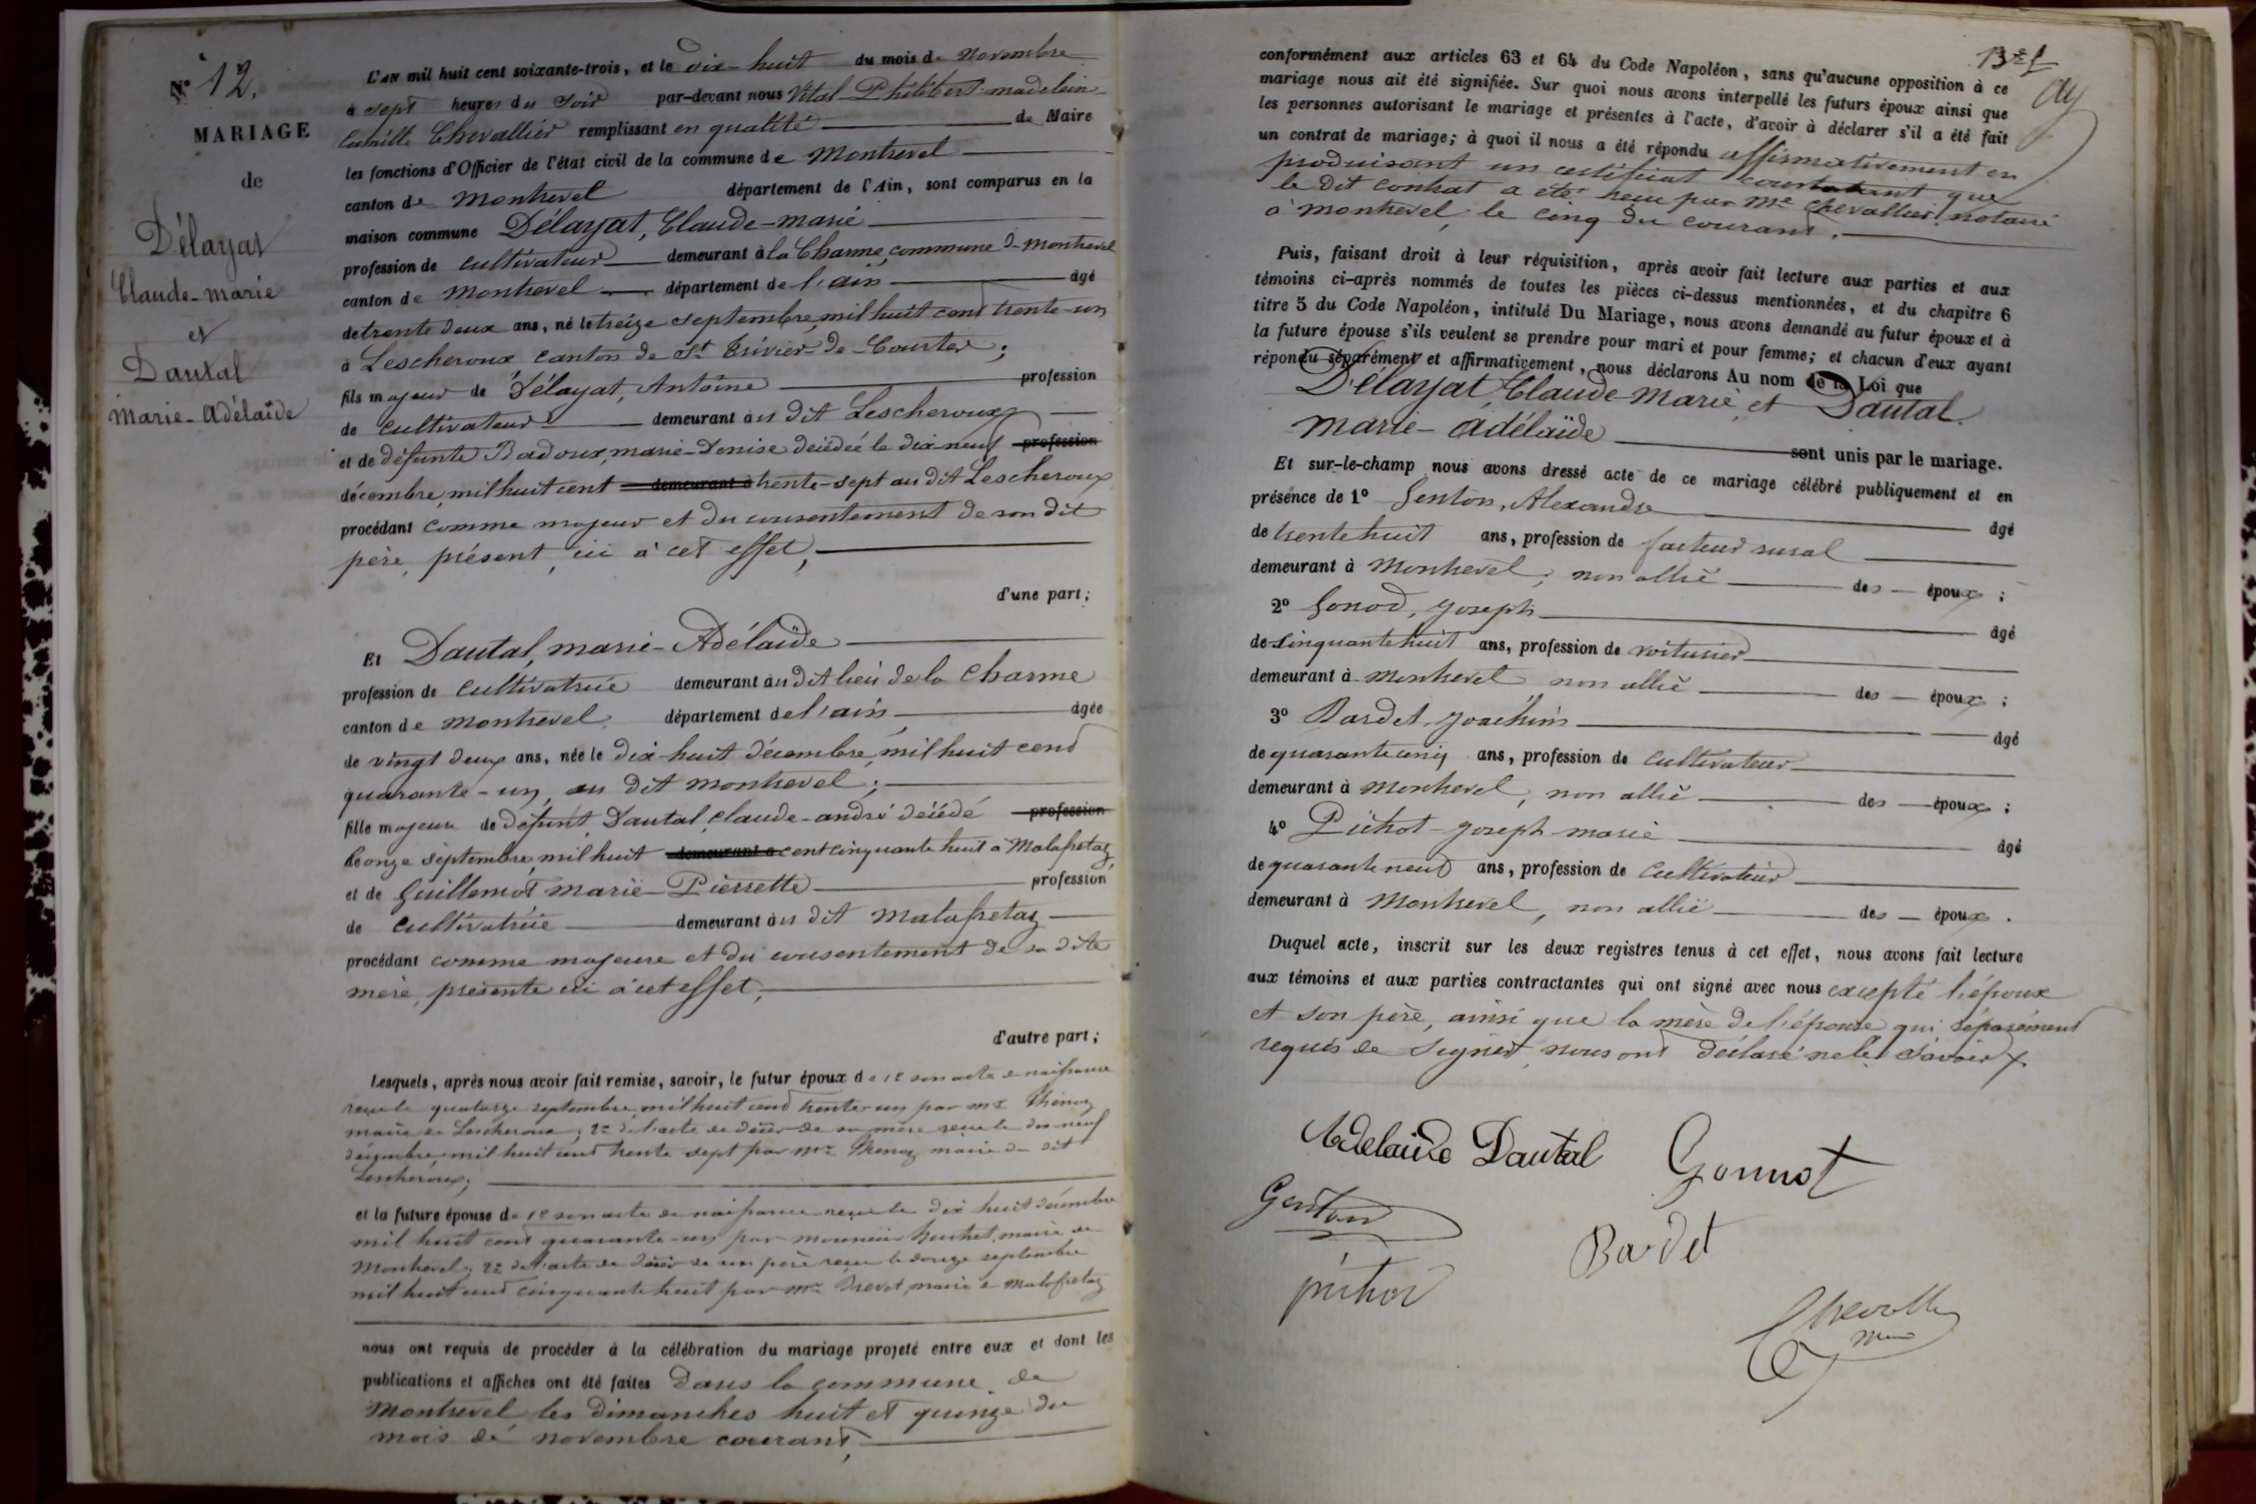 N° 12.
MARIAGE
de
Délayat
Claude-marie
et
Dautal
Marie-Adélaïde
L'AN mil huit cent soixante-trois, et le dix-huit du mois de Novembre
à sept heures du soir par-devant nous Vital Philibert-madelein-
Camille Chevallier remplissant en qualité de Maire
les fonctions d'Officier de l'état civil de la commune de Montrevel
canton de Montrevel département de l'Ain, sont comparus en la
maison commune Délayat, Claude-marie
profession de cultivateur demeurant à la Charme, commune de Montrevel
canton de Montrevel département de l'ain âgé
de trente deux ans, né le treize septembre mil huit cent trente-un
à Lescheroux canton de St Trivier-de-Courtes;
fils majeur de Délayat, Antoine profession
de cultivateur demeurant au dit Lescheroux
et de défunte Badoux, marie-Denise décédée le dix neuf profession
décembre mil huit cent demeurant à trente-sept au dit Lescheroux
procédant comme majeur et du consentement de son dit
père, présent, ici à cet effet,
d'une part;
Et Dautal, marie-Adélaïde
profession de cultivatrice demeurant au dit lieu de la Charme
canton de Montrevel département de l'ain âgée
de vingt deux ans, née le dix-huit décembre mil huit cent
quarante-un, au dit Montrevel;
fille majeure de défunt Dautal, Claude-andré décédé profession
le onze septembre mil huit demeurant à cent cinquante huit à Malafretaz
et de Guillemot marie-Pierrette profession
de cultivatrice demeurant au dit Malafretaz
procédant comme majeure et du consentement de sa dite
mère, présente ici à cet effet,
d'autre part;
Lesquels, après nous avoir fait remise, savoir, le futur époux de 1° son acte de naissance
reçu le quatorze septembre mil huit cent trente-un par mr Thénoz
maire de Lescheroux; 2° de l'acte de décès de sa mère reçu le dix-neuf
décembre mil huit cent trente sept par mr Thénoz maire du dit
Lescheroux;
et la future épouse de 1° son acte de naissance reçu le dix huit décembre
mil huit cent quarante-un par monsieur huchet, maire de
Montrevel; 2° de l'acte de décès de son père reçu le douze septembre
mil huit cent cinquante huit par mr Prevet, maire de Malafretaz
nous ont requis de procéder à la célébration du mariage projeté entre eux et dont les
publications et affiches ont été faites dans la commune de
Montrevel les dimanches huit et quinze du
mois de novembre courant,
conformément aux articles 63 et 64 du Code Napoléon, sans qu'aucune opposition à ce
mariage nous ait été signifiée. Sur quoi nous avons interpellé les futurs époux ainsi que
les personnes autorisant le mariage et présentes à l'acte, d'avoir à déclarer s'il a été fait
un contrat de mariage; à quoi il nous a été répondu affirmativement en
produisant un certificat constatant que
le dit contrat a été reçu par Me Chevallier, notaire
à Montrevel, le cinq du courant.
Puis, faisant droit à leur réquisition, après avoir fait lecture aux parties et aux
témoins ci-après nommés de toutes les pièces ci-dessus mentionnées, et du chapitre 6
titre 5 du Code Napoléon, intitulé Du Mariage, nous avons demandé au futur époux et à
la future épouse s'ils veulent se prendre pour mari et pour femme; et chacun d'eux ayant
répondu séparément et affirmativement, nous déclarons Au nom de la Loi que
Délayat, Claude-Marie et Dautal
Marie-Adélaïde
sont unis par le mariage.
Et sur-le-champ nous avons dressé acte de ce mariage célébré publiquement et en
présence de 1° Genton, Alexandre âgé
de trente huit ans, profession de facteur rural
demeurant à Montrevel, non allié des époux;
2° Gonod, Joseph âgé
de cinquante huit ans, profession de voiturier
demeurant à Montrevel non allié des époux;
3° Bardet Joachim âgé
de quarante cinq ans, profession de cultivateur
demeurant à Montrevel, non allié des époux;
4° Pichot-Joseph-marie âgé
de quarante neuf ans, profession de cultivateur
demeurant à Montrevel, non allié des époux.
Duquel acte, inscrit sur les deux registres tenus à cet effet, nous avons fait lecture
aux témoins et aux parties contractantes qui ont signé avec nous excepté l'époux
et son père, ainsi que la mère de l'épouse qui séparément
requis de signer, nous ont déclaré ne le savoir
Adelaide Dautal Gonnot
Genton
Bardet
pichod
Chevallier